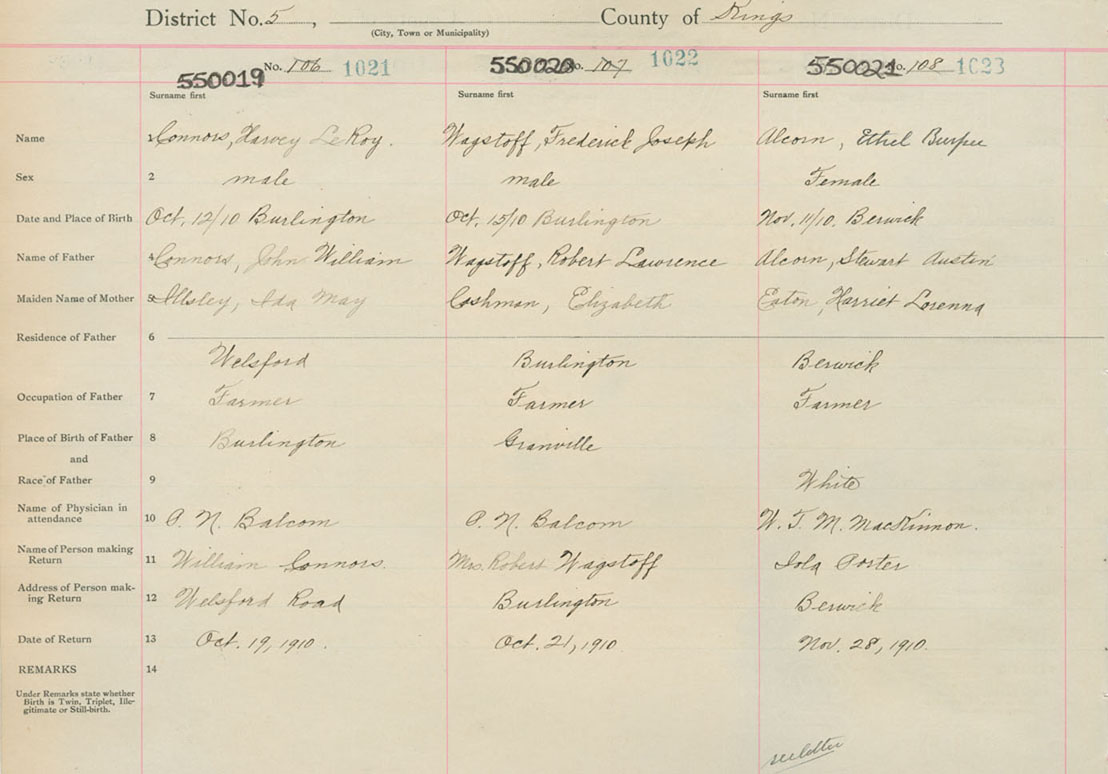 District No. 5, County of Kings
(City, Town or Municipality)
550019 No. 106 1021 550020 No. 107 1022 550021 No. 108 1023
Surname first Surname first Surname first
Name 1 Connors, Harvey LeRoy. Wagstoff, Frederick Joseph Alcorn, Ethel Burpee
Sex 2 male male Female
Date and Place of Birth Oct. 12/10 Burlington Oct. 15/10 Burlington Nov. 11/10. Berwick
Name of Father 4 Connors, John William Wagstoff, Robert Lawrence Alcorn, Stewart Austin
Maiden Name of Mother 5 Illsley, Ida May Coshman, Elizabeth Eaton, Harriet Lorenna
Residence of Father 6
Welsford Burlington Berwick
Occupation of Father 7 Farmer Farmer Farmer
Place of Birth of Father 8 Burlington Granville
and
Race of Father 9 White
Name of Physician in
attendance 10 P. N. Balcom P. N. Balcom W. T. M. MacKinnon.
Name of Person making
Return 11 William Connors. Mrs. Robert Wagstoff Iola Porter
Address of Person mak-
ing Return 12 Welsford Road Burlington Berwick
Date of Return 13 Oct. 19, 1910. Oct. 21, 1910 Nov. 28, 1910.
REMARKS 14
Under Remarks state whether
Birth is Twin, Triplet, Ille-
gitimate or Still-birth.
see letter